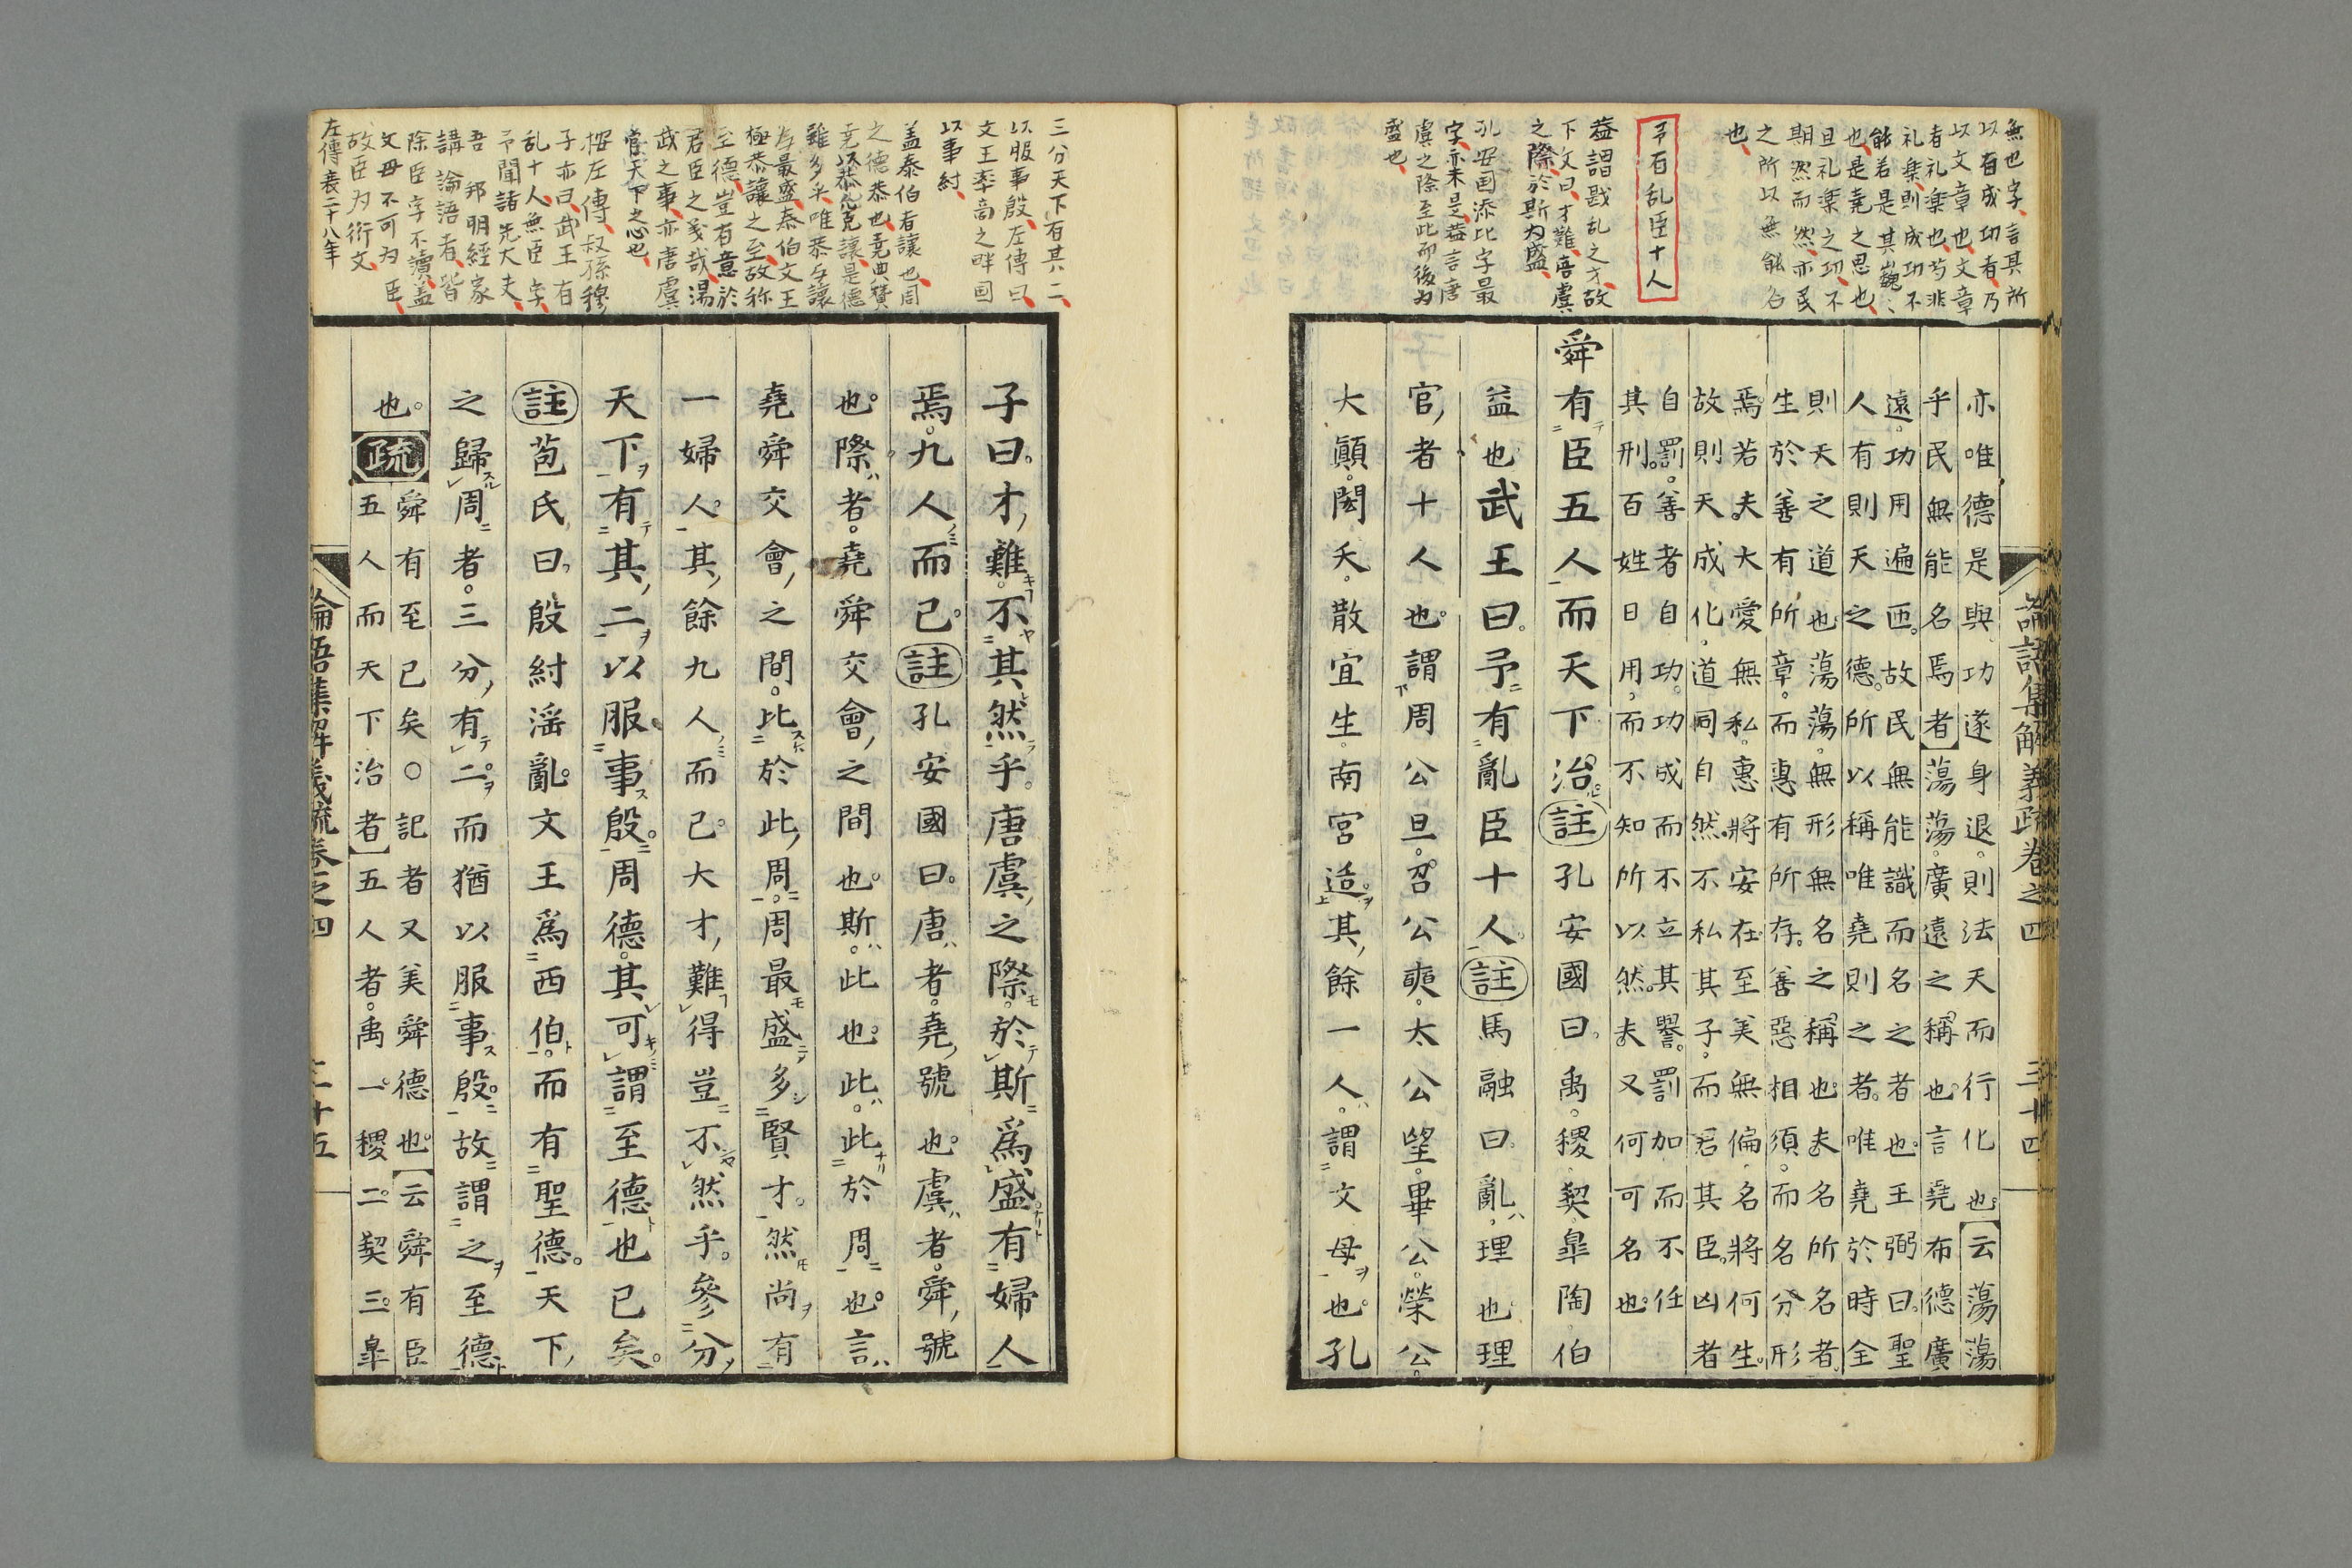 無也字、言其所
以有成功者、乃
以文章也、文章
者礼楽也、苟非
礼楽則成功不
能若是其巍、
也、是堯之思也、
且礼楽之功、不
期然而然、亦民
之所以無能名
也、
予有乱臣十人
益謂戡乱之才、故
下文曰、才難、唐虞
之際、於斯为盛、
孔安国添比字最
字、亦未是、益言唐
虞之際、至此而後为
盛也、
論語集解義疏卷之四 三十四
亦唯德是與功遂身退則法天而行化也【云蕩蕩
乎民無能名焉者】蕩蕩廣遠之稱也言堯布德廣
遠功用遍匝故民無能識而名之者也王弼曰聖
人有則天之德所以稱唯堯則之者唯堯於時全
則天之道也蕩蕩無形無名之稱也夫名所名者
生於善有所章而惠有所存善惡相須而名分形
焉若夫大愛無私惠將安在至美無偏名將何生
故則天成化道同自然不私其子而君其臣凶者
自罰善者自功功成而不立其譽罰加而不任
其刑百姓日用而不知所以然夫又何可名也
舜有臣五人而天下治註孔安國曰禹稷契皐陶伯
益也武王曰予有亂臣十人註馬融曰亂理也理
官者十人也謂周公旦召公奭太公望畢公榮公
大顚閎夭散宜生南宮适其餘一人謂文母也孔
三分天下有其二、
以服事殷、左傳曰、
文王率商之畔国
以事紂、
盖泰伯者讓也、周
之德恭也、堯典賛
堯以恭允克讓、是德
雖多乎、唯恭与讓
为最盛、泰伯文王
極恭讓之至、故称
至德、豈有意於
君臣之義哉、湯
武之事、亦唐虞
官天下之心也、
按左傳、叔孫穆
子亦曰、武王有
乱十人、無臣字、
予聞諸先大夫、
吾邦明經家
講論語者、皆
除臣字不讀、盖
文母不可为臣、
故臣为衍文、
左傳襄二十八年
子曰才難不其然乎唐虞之際於斯爲盛有婦人
焉九人而已註孔安國曰唐者堯號也虞者舜號
也際者堯舜交會之間也斯此也此此於周也言
堯舜交會之間比於此周周最盛多賢才然尚有
一婦人其餘九人而已大才難得豈不然乎參分
天下有其二以服事殷周德其可謂至德也已矣
註苞氏曰殷紂淫亂文王爲西伯而有聖德天下
之歸周者三分有二而猶以服事殷故謂之至德
也疏舜有至已矣○記者又美舜德也【云舜有臣
五人而天下治者】五人者禹一稷二契三皐
論語集解義疏卷之四 三十五